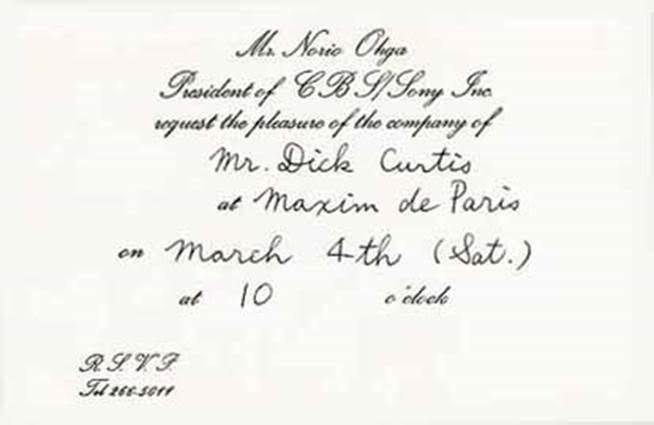 Mr. Norio Ohga
President of CBS/Sony Inc.
request the pleasure of the company of
Mr. Dick Curtis
at Maxim de Paris
on March 4th (Sat.)
at 10 o'clock
R.S.V.P.
Tel 266-5011